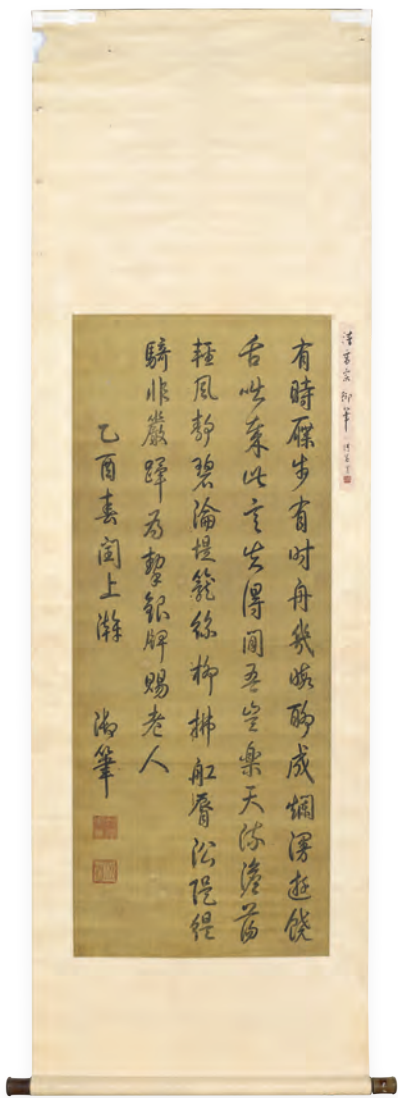 清高宗 御筆
有時屧步有时舟幾暇聊成爛漫遊饒
舌咲此言失得間吾豈樂天流澹蕩
輕風静碧淪堤籠絲柳拂舡脣沿隄緹
騎非嚴蹕為挈銀牌賜老人
乙酉春閏上澣 御筆